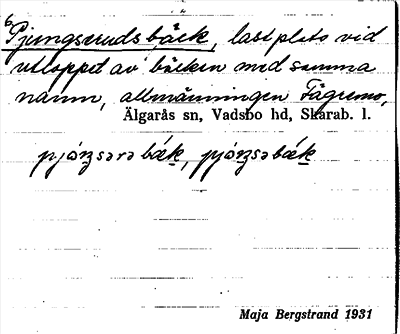 Pjungseruds bäck, lastplats vid
utloppet av bäcken med samma
namn, allmänningen Fägremo,
Älgarås sn, Vadsbo hd, Skarab. l.
pjóŋsərə bäk, pjóŋsəbäk
Maja Bergstrand 1931